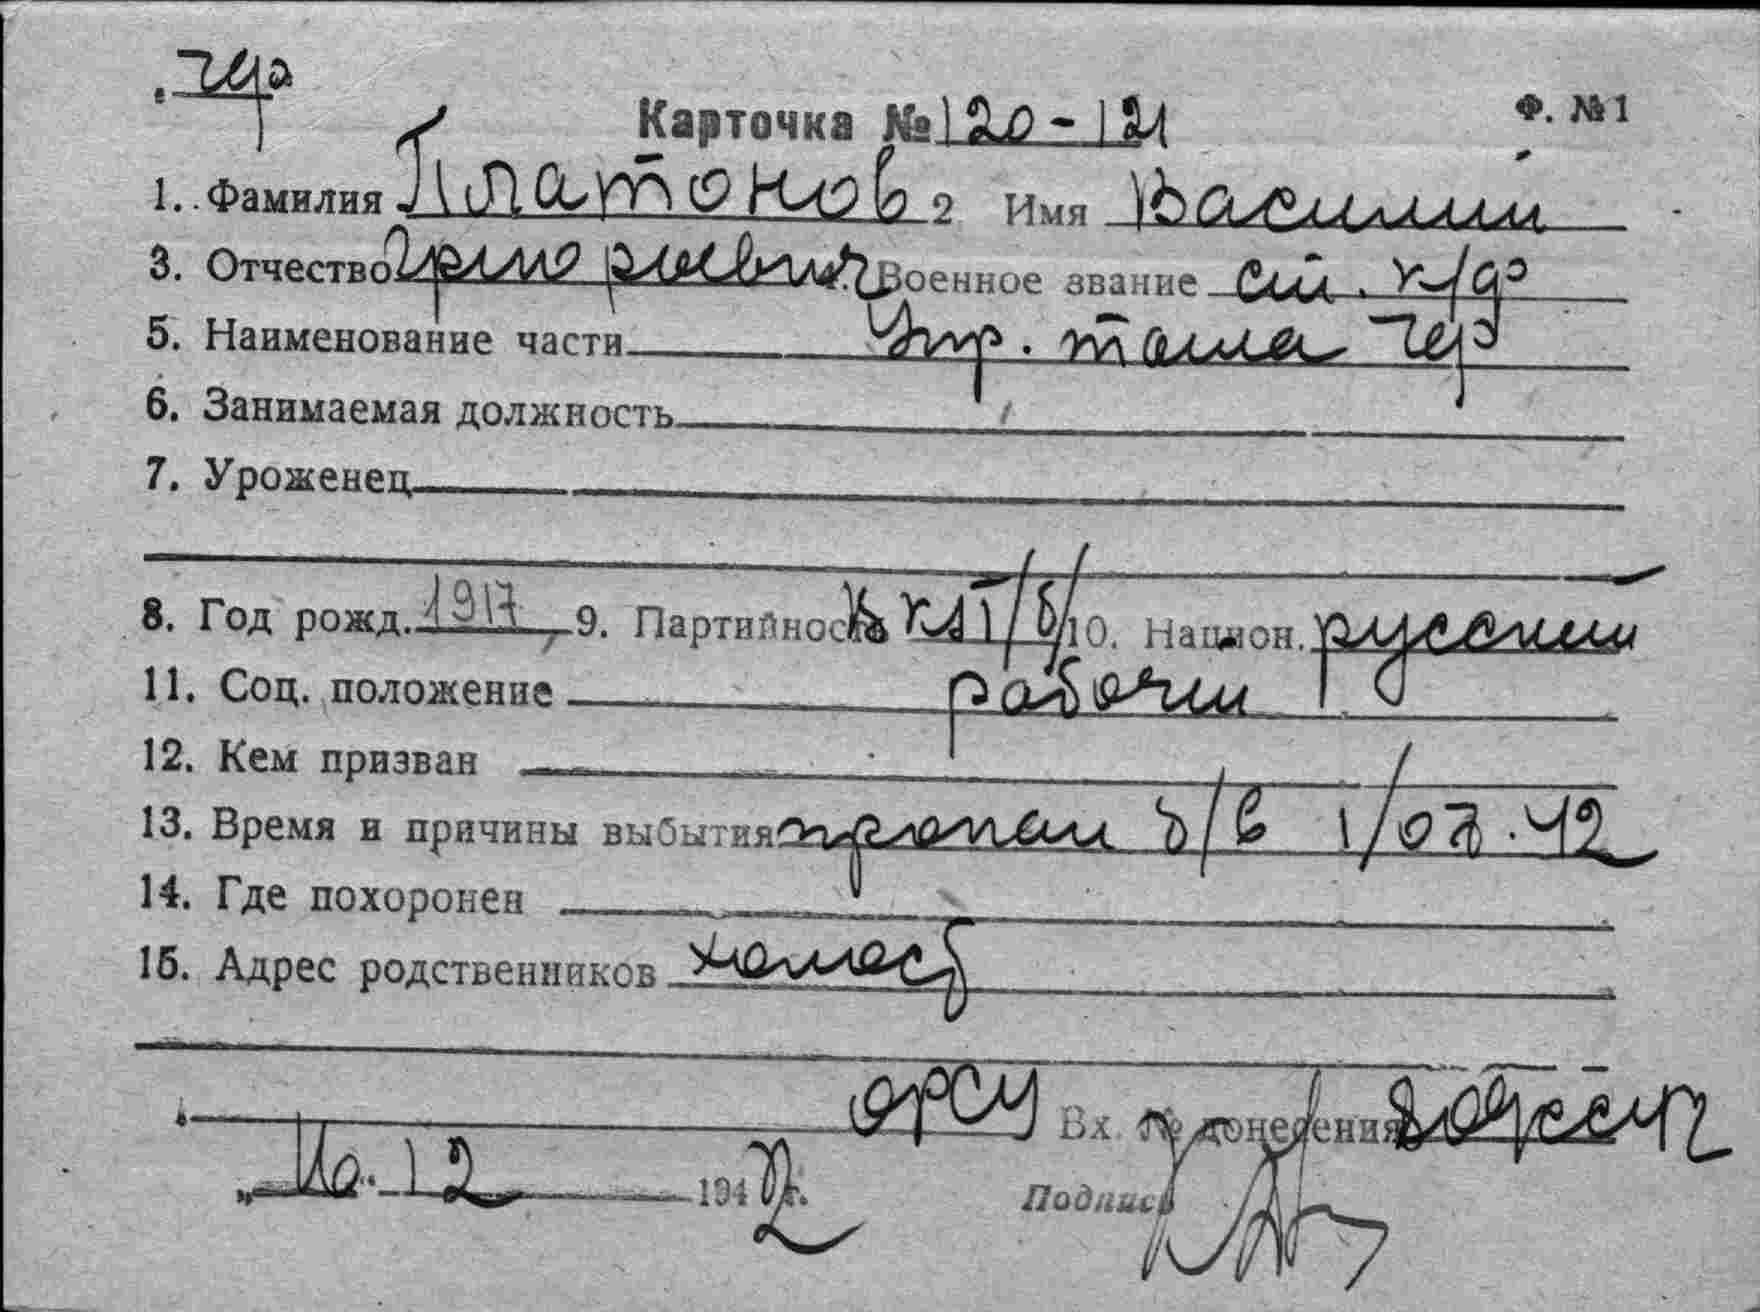 чф
Карточка № 120-121 Ф. № 1
1. Фамилия Платонов 2 Имя Василий
3. Отчество Григорьевич Военное звание ст. к/ф
5. Наименование части Упр. тыла чф
6. Занимаемая должность
7. Уроженец
8. Год рожд. 1917 9. Партийность ВКП/б/ 10. Национ. русский
11. Соц. положение рабочий
12. Кем призван
13. Время и причины выбытия пропал б/в 1/07.42
14. Где похоронен
15. Адрес родственников холост
ОРСУ Вх. № донесения
12 1942 г. Подпись